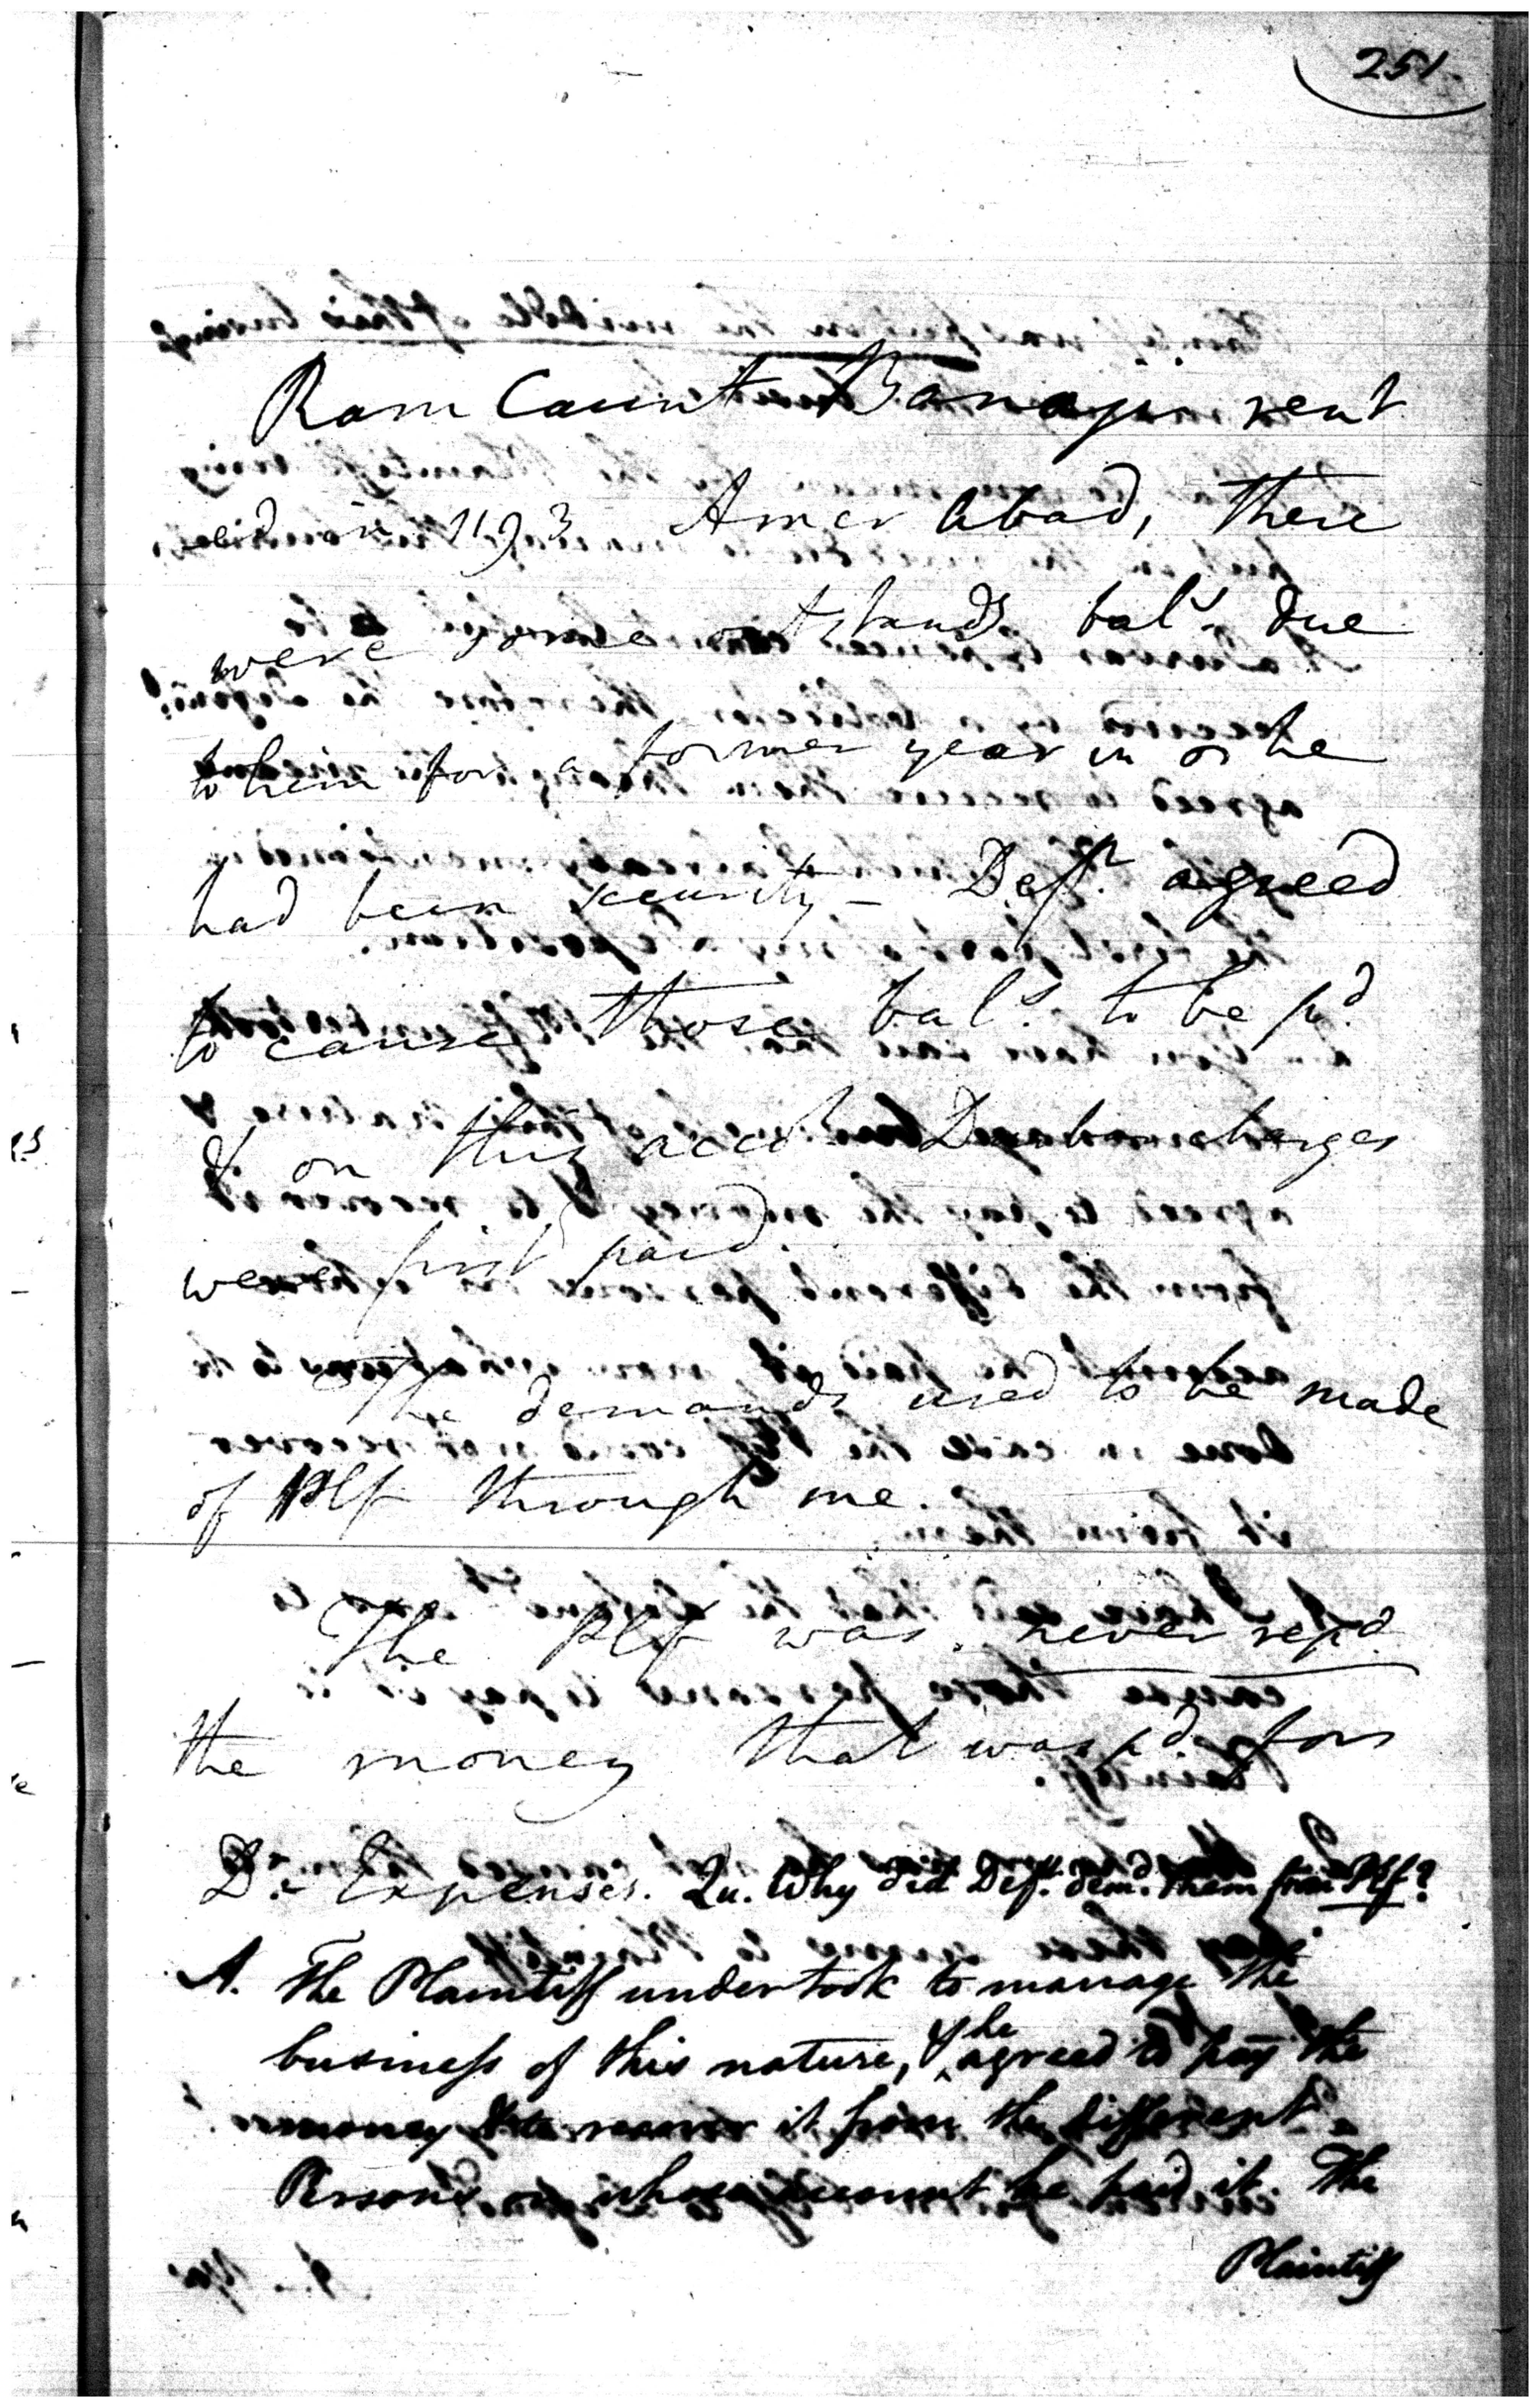 251
Ram Caunt Banajee rent
ed in 1193 Amer abad, There
were some outstandg bals. due
to him for a former year in wh he
had been security – Deft. agreed
to cause those bals. to be pd.
& on this acct Durbar charges
were first paid.
The demands used to be made
of Plf through me.
The Plf was never repd.
the money that was pd. for
Dr. Expenses. Qu. Why did Deft. demd. them from Plf?
A. The Plaintiff undertook to manage the
business of this nature, & he agreed to pay the
money & to recover it from the different
Persons on whose account he paid it. The
Plaintiff